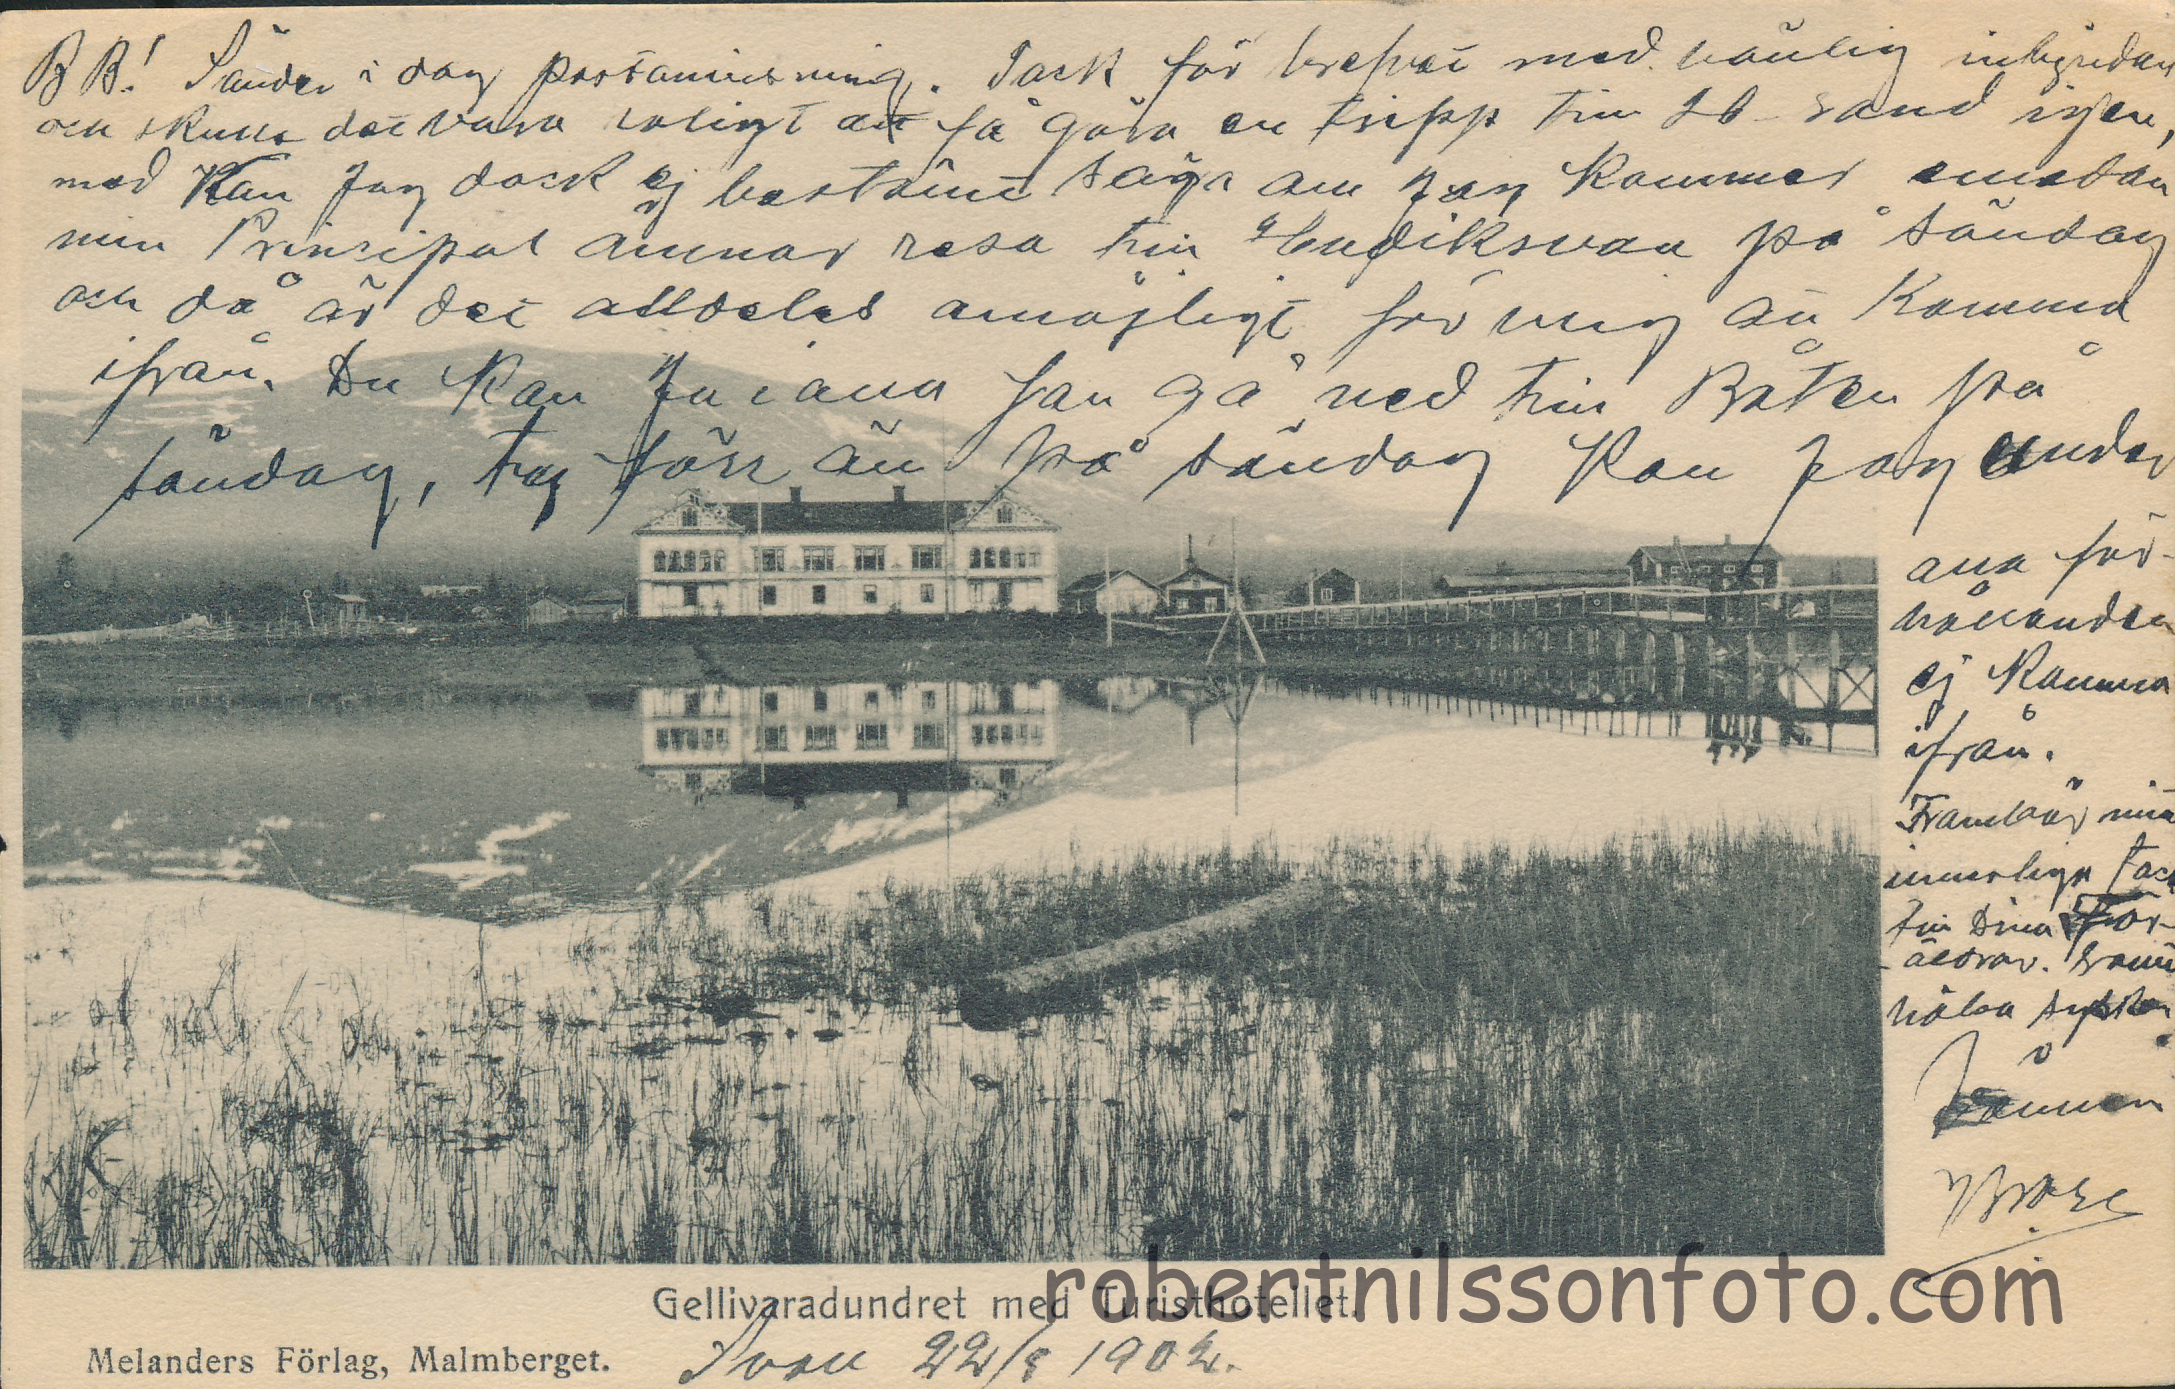 B B! Sänder i dag postanvisning. Tack för brefvet med vänlig inbjudan
och skulle det vara roligt att få göra en tripp till Sand igen,
med kan jag dock ej bestämt säga om jag kommer emedan
min Prinsipal ämnar resa till Hudiksvall på söndag
och då är det alldeles omöjligt för mig att komma
ifrån. Du kan ju i alla fall gå ned till Båten på
söndag, tag först än på söndag kan jag under
alla för-
hållanden
ej komma
ifrån.
Frambär min
innerliga tack
till Dina För-
äldrar. samt
hälsa syster
Vännen
Gellivaradundret med Turisthotellet.
Melanders Förlag, Malmberget. 22/8 1902.
robertnilssonfoto.com